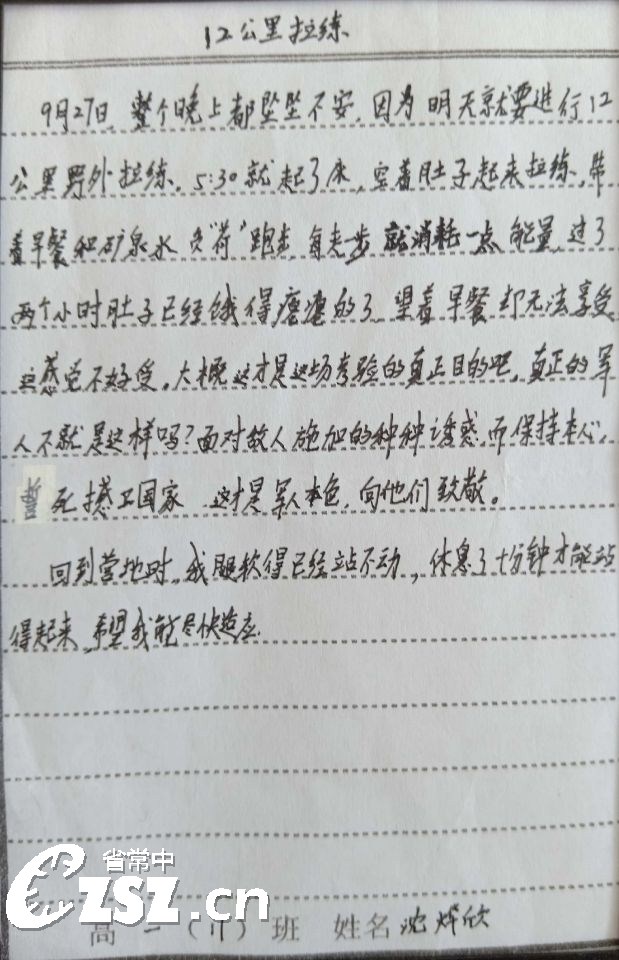 12公里拉练
9月27日,整个晚上都坠坠不安,因为明天就要进行12
公里野外拉练。5:30就起了床,空着肚子起来拉练,带
着早餐和矿泉水负“荷”跑步,每走一步就消耗一点能量,过了
两个小时肚子已经饿得瘪瘪的了,望着早餐却无法享受
这感觉不好受。大概这才是这场考验的真正目的吧,真正的军
人不就是这样吗?面对敌人施加的种种诱惑,而保持本心,
誓死捍卫国家,这才是军人本色,向他们致敬。
回到营地时,我腿软得已经站不动,休息了十分钟才能站
得起来,希望我能尽快适应.
省常中
czsz.cn
高一(11)班 姓名 沈烨欣